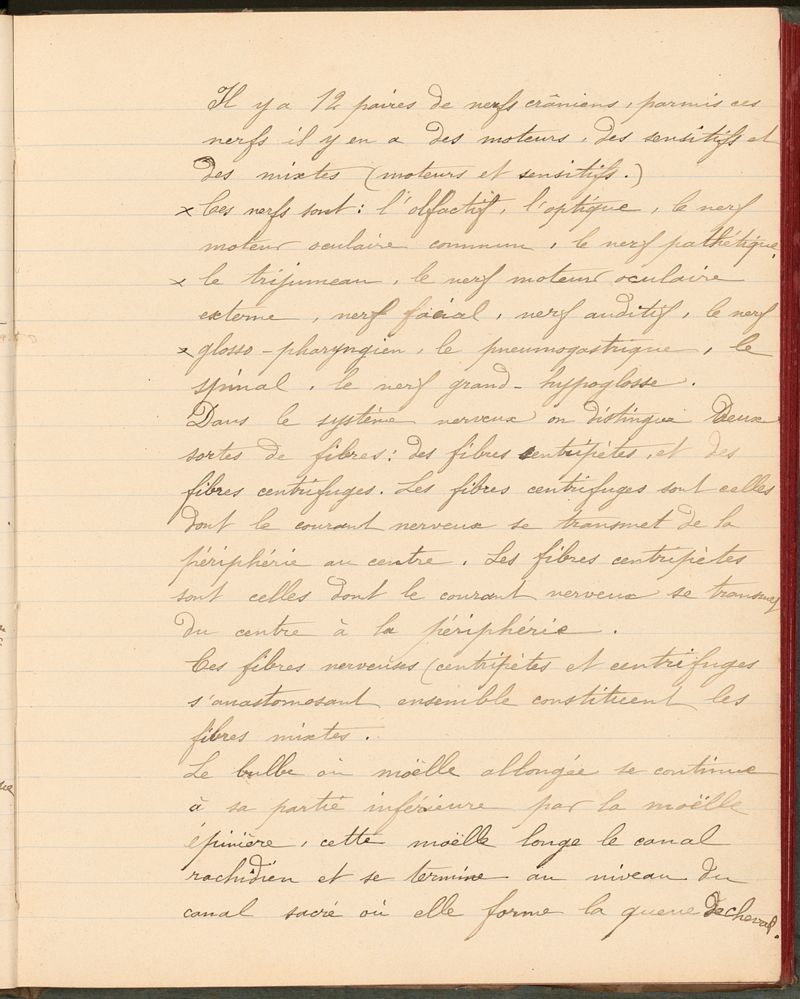 Il y a 12 paires de nerfs crâniens, parmis ces
nerfs il y en a des moteurs, des sensitifs et
des mixtes (moteurs et sensitifs.)
x Ces nerfs sont : l'olfactif, l'optique, le nerf
moteur oculaire commun, le nerf pathétique,
x le trijumeau, le nerf moteur oculaire
externe, nerf facial, nerf auditif, le nerf
x glosso-pharyngien, le pneumogastrique, le
spinal, le nerf grand-hypoglosse.
Dans le système nerveux on distingue deux
sortes de fibres : des fibres centripètes, et des
fibres centrifuges. Les fibres centrifuges sont celles
dont le courant nerveux se transmet de la
périphérie au centre. Les fibres centripètes
sont celles dont le courant nerveux se transmet
du centre à la périphérie.
Ces fibres nerveuses (centripètes et centrifuges
s'anastomosant ensemble constituent les
fibres mixtes.
Le bulbe ou moëlle allongée se continue
à sa partie inférieure par la moëlle
épinière, cette moëlle longe le canal
rachidien et se termine au niveau du
canal sacré où elle forme la queue de cheval.